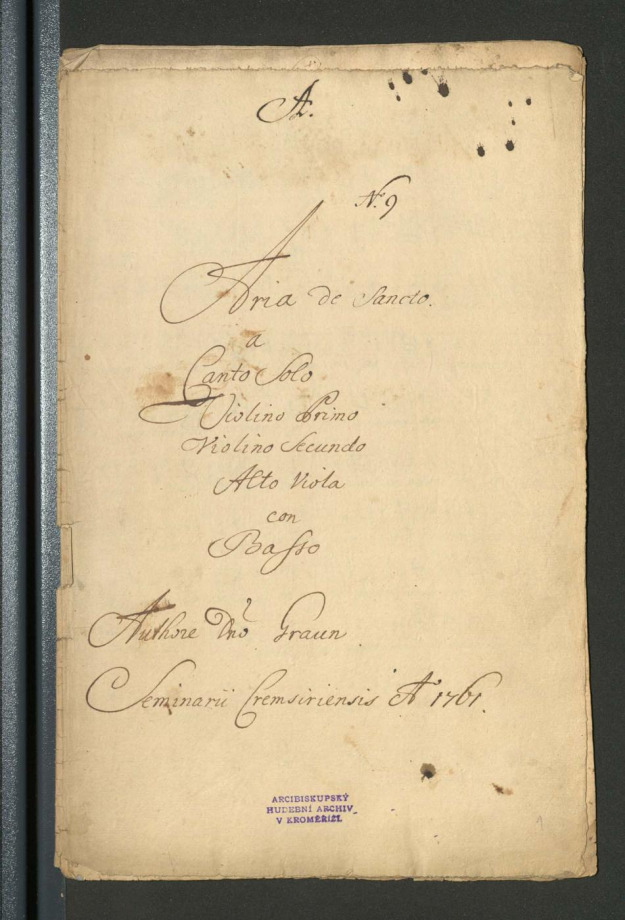 A.
No. 9
Aria de Sancto.
a
Canto Solo
Violino Primo
Violino Secundo
Alto Viola
con
Basso
Authore Dnō Graun
Seminarii Cremsiriensis Aº 1761.
ARCIBISKUPSKÝ
HUDEBNÍ ARCHIV
V KROMĚŘÍŽI.